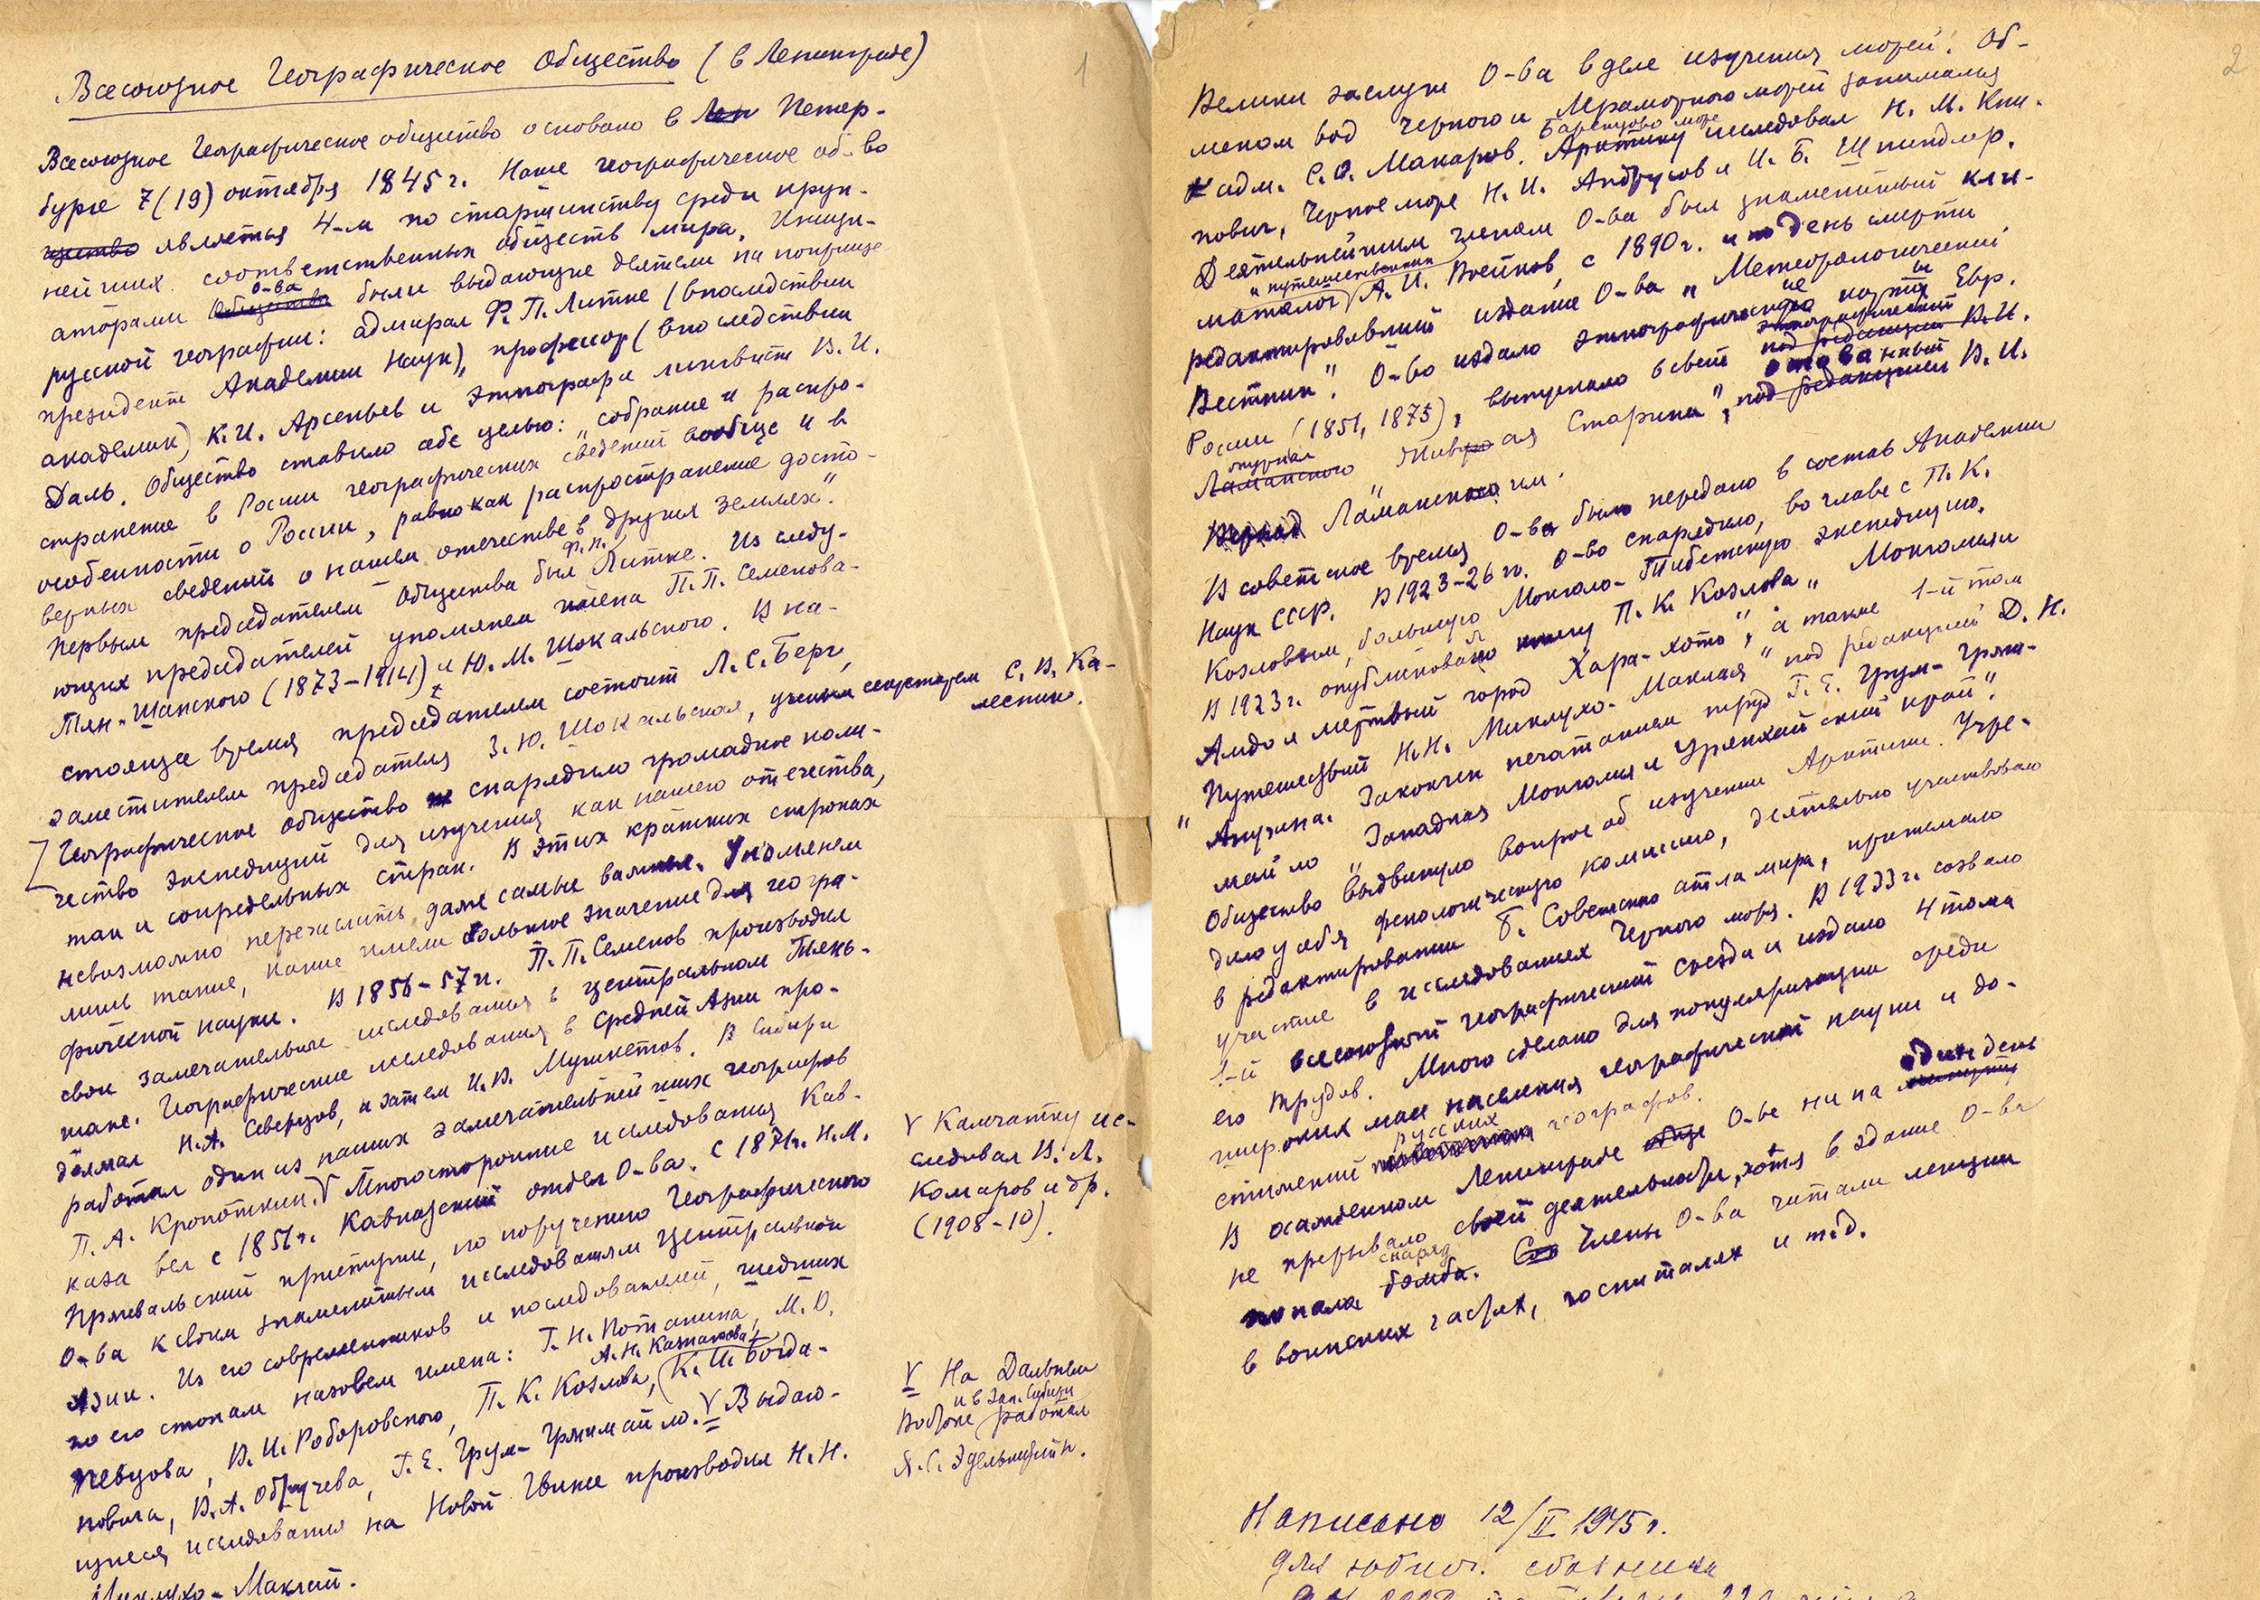 Всесоюзное Географическое Общество (в Ленинграде)
1
Всесоюзное Географическое общество основано в Лен Петер-
бурге 7(19) октября 1845 г. Наше географическое об-во
щество является 4-м по старшинству среди круп-
нейших соответственных обществ мира. Иници-
аторами Общества о-ва были выдающие деятели на поприще
русской географии: адмирал Ф. П. Литке (впоследствии
президент Академии Наук), профессор (впоследствии
академик) К. И. Арсеньев и этнограф и лингвист В. И.
Даль. Общество ставило себе целью: „собрание и распро-
странение в России географических сведений вообще и в
особенности о России, равно как распространение досто-
верных сведений о нашем отечестве в других землях".
Первым председателем Общества был Ф. П. Литке. Из следу-
ющих председателей упомянем имена П. П. Семенова-
Тян-Шанского (1873–1914) и Ю. М. Шокальского. В на-
стояще время председателем состоит Л. С. Берг,
заместителем председателя З. Ю. Шокальская, ученым секретарем С. В. Ка-
лесник.
Географическое общество снарядило громадное коли-
чество экспедиций для изучения как нашего отечества,
так и сопредельных стран. В этих кратких строках
невозможно перечислить даже самые важные. Упомянем
лишь такие, какие имели большое значение для геогра-
фической науки. В 1856–57 гг. П. П. Семенов производил
свои замечательные исследования в центральном Тянь-
шане. Географические исследования в Средней Азии про-
должал Н. А. Северцов, а затем И. В. Мушкетов. В Сибири
работал один из наших замечательнейших географов
П. А. Кропоткин. V Многосторонние исследования Кав-
каза вел с 1851 г. Кавказский отдел О-ва. С 1871 г. Н. М.
Пржевальский приступил, по поручению Географического
О-ва к своим знаменитым исследованиям Центральной
Азии. Из его современников и последователей, шедших
по его стопам назовем имена: Г. Н. Потанина, М. В.
Певцова, В. И. Роборовского, П. К. Козлова, А. Н. Казнакова, К. И. Богда-
новича, В. А. Обручева, Г. Е. Грум-Гржимайло. V Выдаю-
щиеся исследования на Новой Гвинее производил Н. Н.
Миклухо-Маклай.
V Камчатку ис-
следовал В. Л.
Комаров и др.
(1908–10).
V На Дальнем
и в Зап. Сибири
Востоке работал
Я. С. Эдельштейн.
2
Велики заслуги О-ва в деле изучения морей. Об-
меном вод Черного и Мраморного морей занимался
адм. С. О. Макаров. Арктику Баренцово море исследовал Н. М. Кни-
пович, Черное море Н. И. Андрусов и И. Б. Шпиндлер.
Деятельнейшим членом О-ва был знаменитый кли-
матолог и путешественник А. И. Воейков, с 1890 г. и по день смерти
редактировавший издание О-ва „Метеорологический
Вестник". О-во издало этнографические карты Евр.
России (1851, 1875), выпускало в свет этнографический под редакцией В. И.
Ламанского журнал Живая Старина", основанный под редакцией В. И.
Ламанским.
В советское время О-во было передано в состав Академии
Наук СССР. В 1923–26 гг. О-во снарядило, во главе с П. К.
Козловым, большую Монголо-Тибетскую экспедицию.
В 1923 г. опубликовало книгу П. К. Козлова „Монголия и
Амдо и мертвый город Хара-хото", а также 1-й том
„Путешествий Н. Н. Миклухо-Маклая" под редакцией Д. Н.
Анучина. Закончен печатанием труд Г. Е. Грум-Гржи-
майло „Западная Монголия и Урянхайский край".
Общество выдвинуло вопрос об изучении Арктики. Учре-
дило у себя фенологическую комиссию, деятельно участвовало
в редактировании Б. Советского атласа мира, принимало
участие в исследованиях Черного моря. В 1933 г. созвало
1-й всесоюзный географический съезд и издало 4 тома
его трудов. Много сделано для популяризации среди
широких масс населения географической науки и до-
стижений русских географов.
В осажденном Ленинграде О-во ни на минуту один день
не прерывало своей деятельности, хотя в здание О-ва
попала бомба. снаряд Члены О-ва читали лекции
в воинских частях, госпиталях и т. д.
Написано 12/II 1945 г.
для юбил. сборника